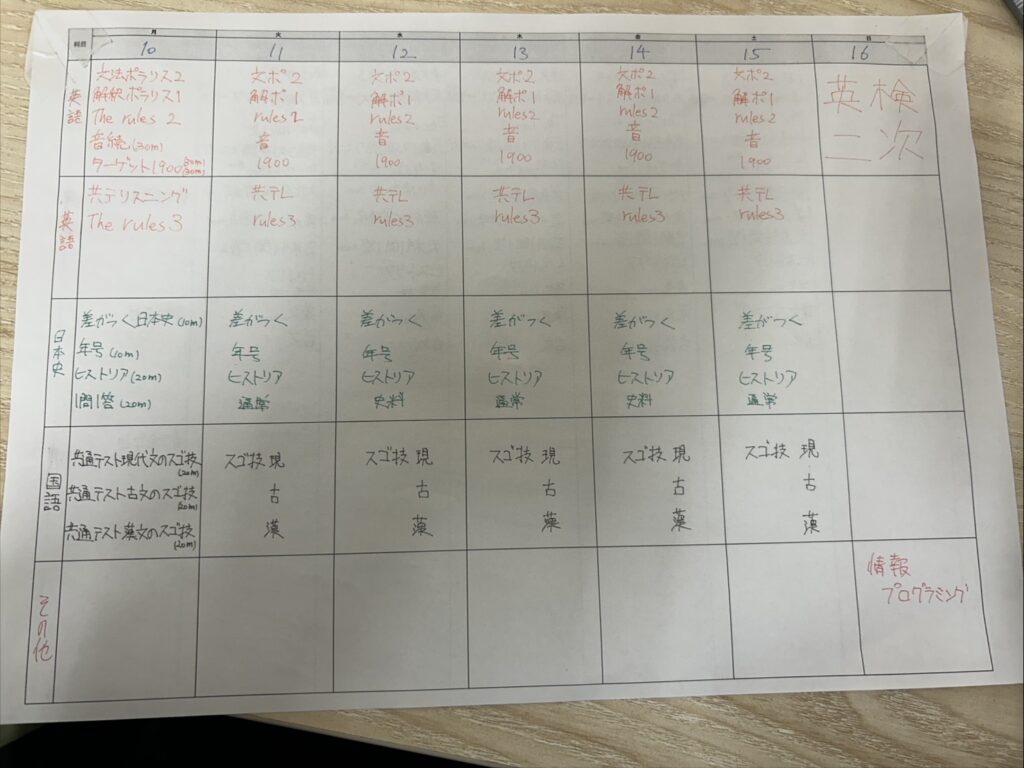 科目 月 火 水 木 金 土 日
10 11 12 13 14 15 16
英語
文法ポラリス2 文ポ2 文ポ2 文ポ2 文ポ2 文ポ2 英検
解釈ポラリス1 解ポ1 解ポ1 解ポ1 解ポ1 解ポ1 二次
The rules 2 rules 2 rules 2 rules 2 rules 2 rules 2
音読(30m) 音 音 音 音 音
ターゲット1900 1900 1900 1900 1900 1900
英語
共テリスニング 共テL 共テL 共テL 共テL 共テL
The rules 3 rules3 rules3 rules3 rules3 rules3
日本史
差がつく日本史(10m) 差がつく 差がつく 差がつく 差がつく 差がつく
年号(10m) 年号 年号 年号 年号 年号
ヒストリア(20m) ヒストリア ヒストリア ヒストリア ヒストリア ヒストリア
1問1答(20m) 通常 史料 通常 史料 通常
国語
共通テスト現代文のスゴ技(20m) スゴ技 現 スゴ技 現 スゴ技 現 スゴ技 現 スゴ技 現
共通テスト古文のスゴ技(20m) 古 古 古 古 古
共通テスト漢文のスゴ技(20m) 漢 漢 漢 漢 漢
その他
情報
プログラミング